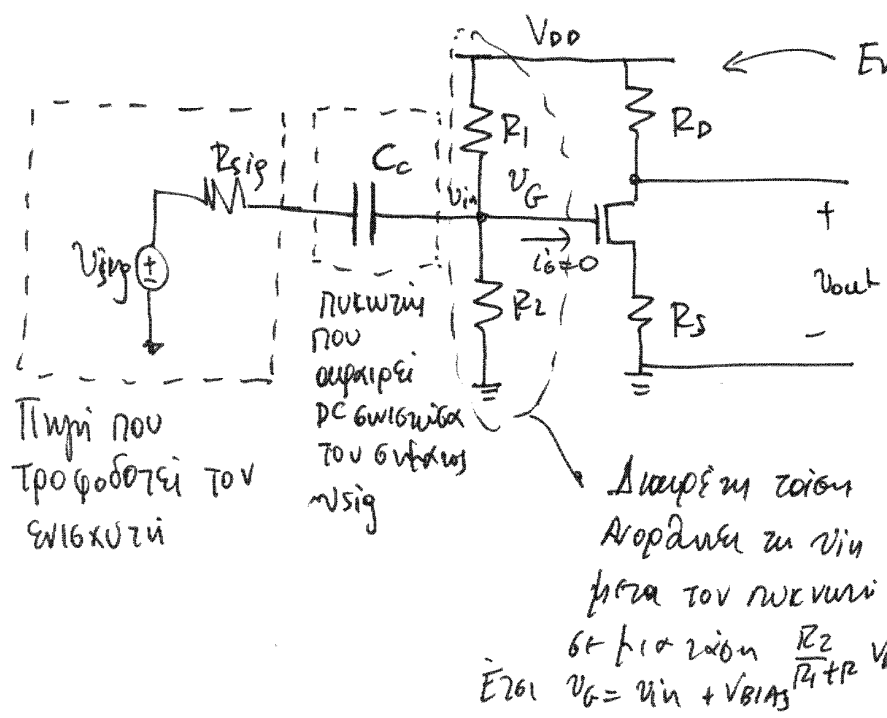 V_DD
Εν
R_1
R_D
R_sig
C_c
v_in
v_G
v_sig
i_G=0
+
v_out
−
R_2
R_S
πυκνωτής
που
αφαιρεί
DC συνιστώσα
του σήματος
v_sig
Πηγή που
τροφοδοτεί τον
ενισχυτή
Διαιρέτη τάση
Ανορθώνει τη v_in
μετά τον πυκνωτή
σε μια τάση R_2/R_1+R V
Έτσι v_G = v_in + V_BIAS